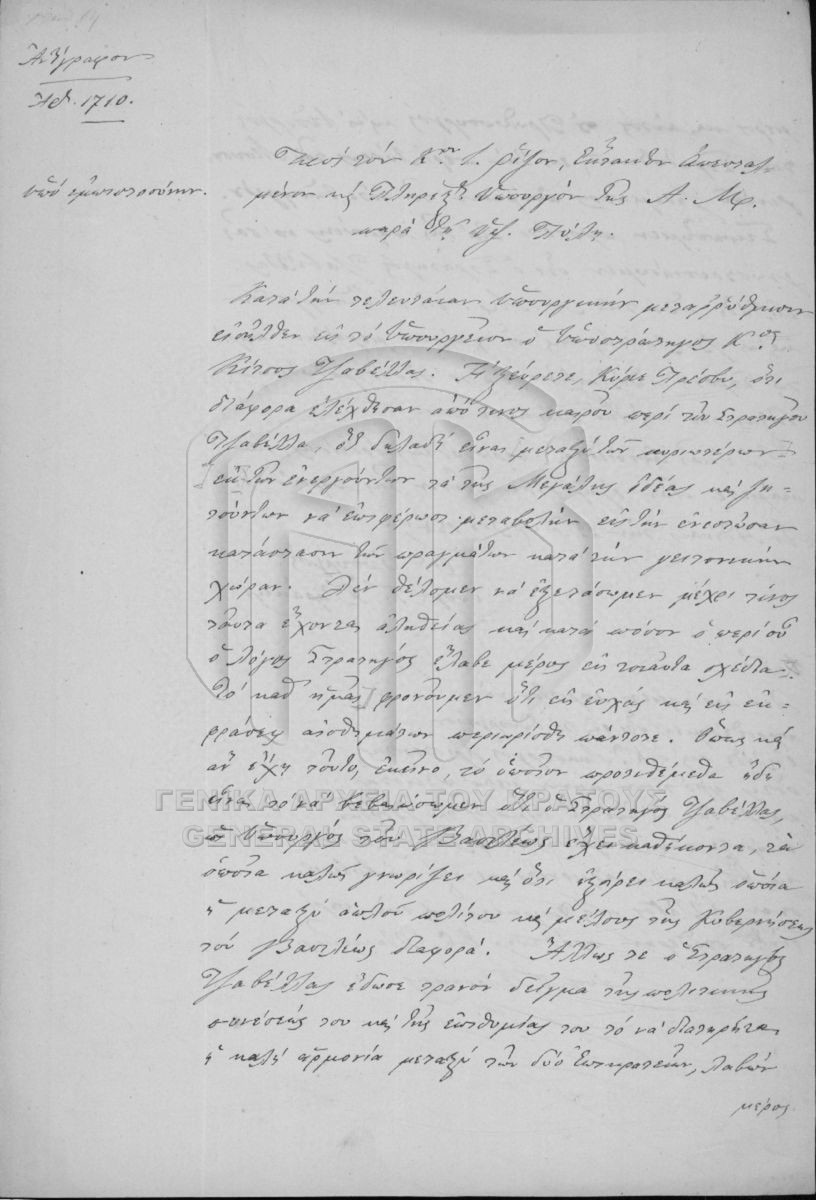 Ἀντίγραφον
Ἀρ. 1710.
ὑπό ἐμπιστοσύνην.
Πρός τόν Κον Ι. Ρίζον, ἔκτακτον ἀπεσταλ-
μένον καί Πληρεξ. Ὑπουργόν τῆς Α. Μ.
παρά τῇ Ὑψ. Πύλῃ.
Κατά τήν τελευταίαν ὑπουργικήν μεταῤῥύθμισιν
εἰσῆλθεν εἰς τό ὑπουργεῖον ὁ ὑποστράτηγος Κος
Κίτσος Τζαβέλλας. Ἠξεύρετε, Κύριε Πρέσβυ, ὅτι
διάφορα ἐλέχθησαν ἀπό τινος καιροῦ περί τοῦ Στρατηγοῦ
Τζαβέλλα, ὅτι δηλαδή εἶναι μεταξύ τῶν κυριωτέρων
ἐκ τῶν ἐνεργούντων τά τῆς Μεγάλης ἰδέας καί ζη-
τούντων νά ἐπιφέρωσι μεταβολήν εἰς τήν ἐνεστῶσαν
κατάστασιν τῶν πραγμάτων κατά τήν γειτονικήν
χώραν. Δέν θέλομεν νά ἐξετάσωμεν μέχρι τίνος
ταῦτα ἔχονται ἀληθείας καί κατά πόσον ὁ περί οὗ
ὁ λόγος Στρατηγός ἔλαβε μέρος εἰς τοιαῦτα σχέδια.
Τό καθ' ἡμᾶς φρονοῦμεν ὅτι εἰς εὐχάς καί εἰς ἐκ-
φράσεις αἰσθημάτων περιωρίσθη πάντοτε. Ὅπως καί
ἄν ἔχῃ τοῦτο, ἐκεῖνο, τό ὁποῖον προτιθέμεθα ἤδη
εἶναι τό νά βεβαιώσωμεν ὅτι ὁ Στρατηγός Τζαβέλλας,
ὡς Ὑπουργός τοῦ Βασιλέως ἔχει καθήκοντα, τά
ὁποῖα καλῶς γνωρίζει καί ὅτι ἐξεύρει καλῶς ὁποία
ἡ μεταξύ ἁπλοῦ πολίτου καί μέλους τῆς Κυβερνήσεως
τοῦ Βασιλέως διαφορά. Ἄλλως τε ὁ Στρατηγός
Τζαβέλλας ἔδωσε τρανόν δεῖγμα τῆς πολιτικῆς
συνέσεώς του καί τῆς ἐπιθυμίας του τό νά διατηρῆται
ἡ καλή ἁρμονία μεταξύ τῶν δύο Ἐπικρατειῶν, λαβών
μέρος
ΓΕΝΙΚΑ ΑΡΧΕΙΑ ΤΟΥ ΚΡΑΤΟΥΣ
GENERAL STATE ARCHIVES